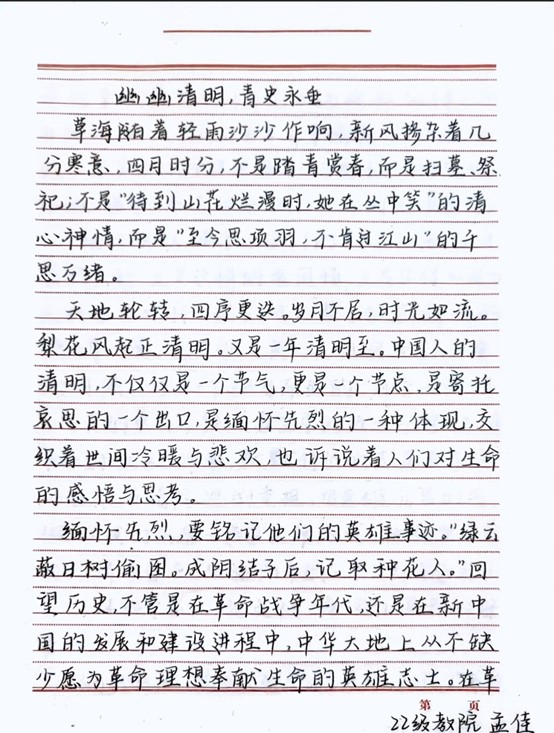 幽幽清明，青史永垂
草海随着轻雨沙沙作响，新风掺杂着几
分寒意，四月时分，不是踏青赏春，而是扫墓、祭
祀；不是“待到山花烂漫时，她在丛中笑”的清
心神情，而是“至今思项羽，不肯过江山”的千
思万绪。
天地轮转，四序更迭。岁月不居，时光如流。
梨花风起正清明。又是一年清明至。中国人的
清明，不仅仅是一个节气，更是一个节点，是寄托
哀思的一个出口，是缅怀先烈的一种体现，交
织着世间冷暖与悲欢，也诉说着人们对生命
的感悟与思考。
缅怀先烈，要铭记他们的英雄事迹。“绿云
蔽日树偷困。成阴结子后，记取种花人。”回
望历史，不管是在革命战争年代，还是在新中
国的发展和建设进程中，中华大地上从不缺
少愿为革命理想奉献生命的英雄志士。在革
第 页
22级教院 孟佳